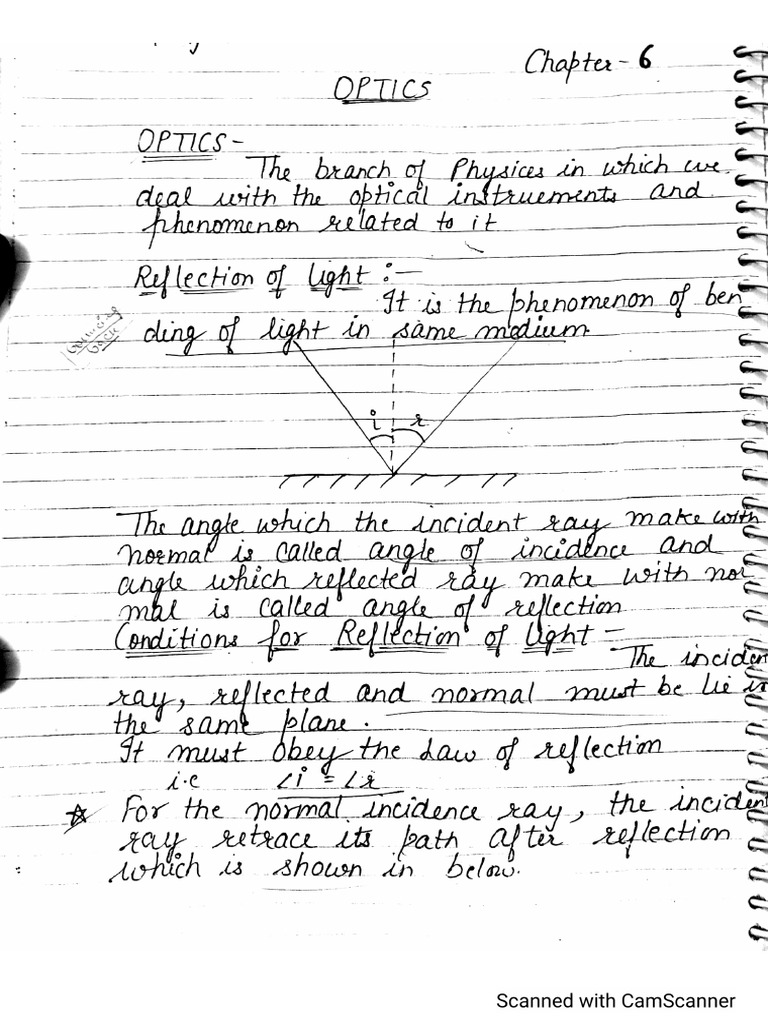 Chapter - 6
OPTICS
OPTICS -
The branch of Physices in which we
deal with the optical instruements and
phenomenon related to it
Reflection of light :-
It is the phenomenon of ben
ding of light in same medium.
bouncing
back
i r
The angle which the incident ray make with
normal is called angle of incidence and
angle which reflected ray make with nor
mal is called angle of reflection
Conditions for Reflection of Light -
The inciden
ray, reflected and normal must be lie in
the same plane.
It must obey the Law of reflection
i.e ∠i = ∠r
☆ For the normal incidence ray, the incident
ray retrace its path after reflection
which is shown in below.
Scanned with CamScanner